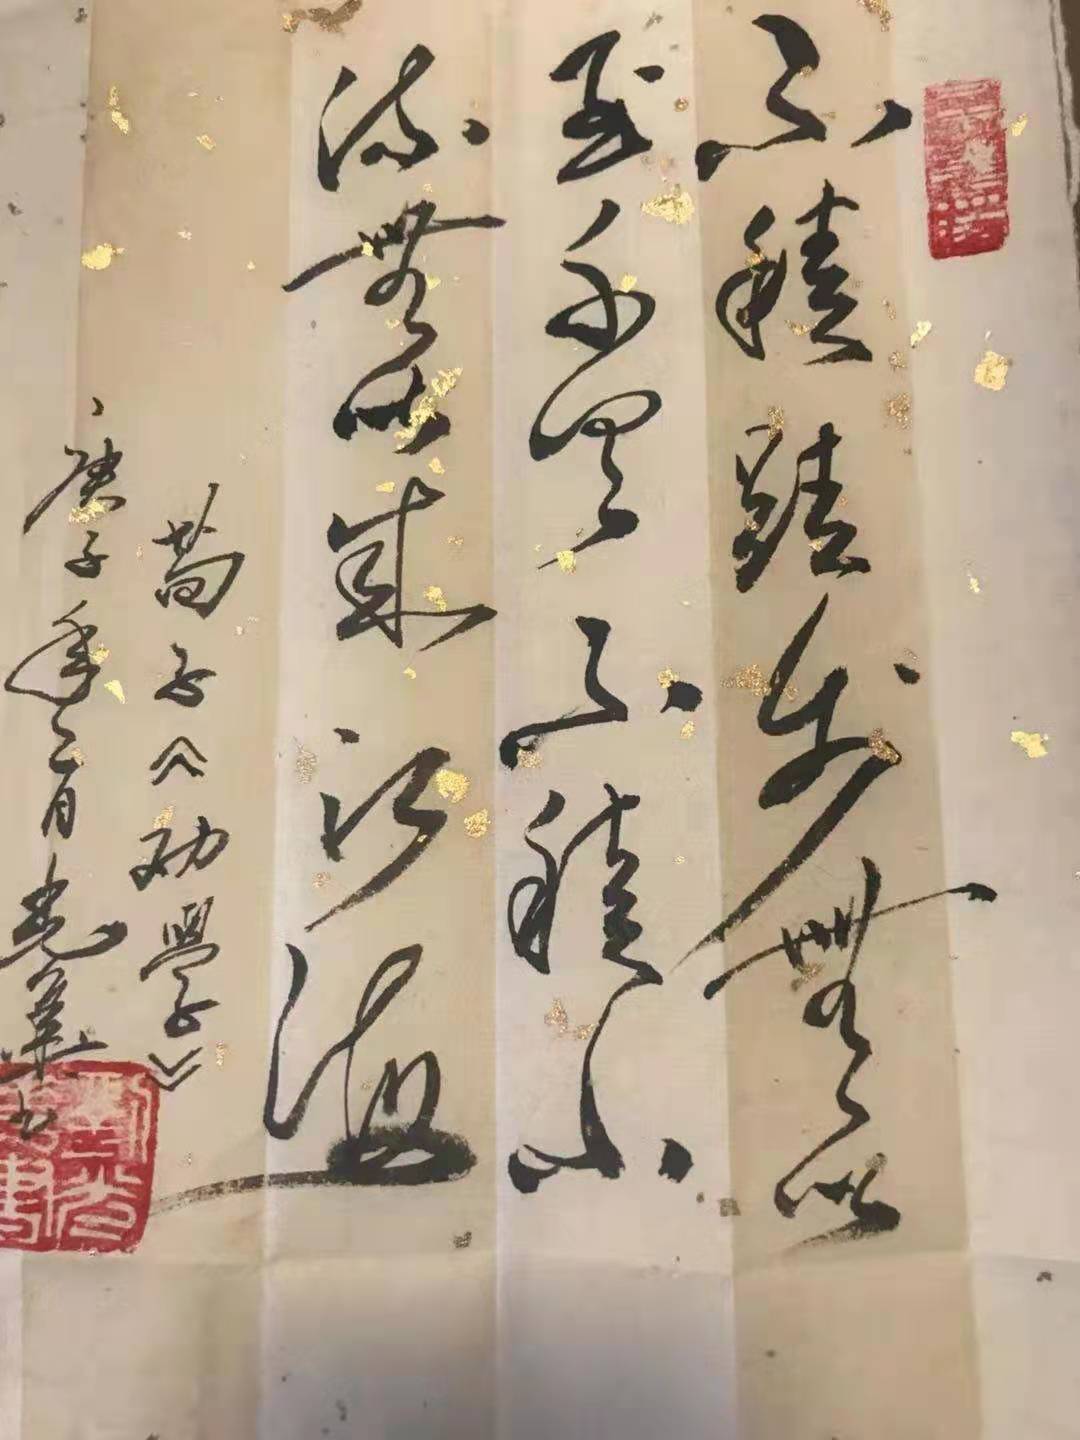 不積蹞步無以
至千里不積小
流無以成江海
荀子《劝學》
庚子年二月光華书